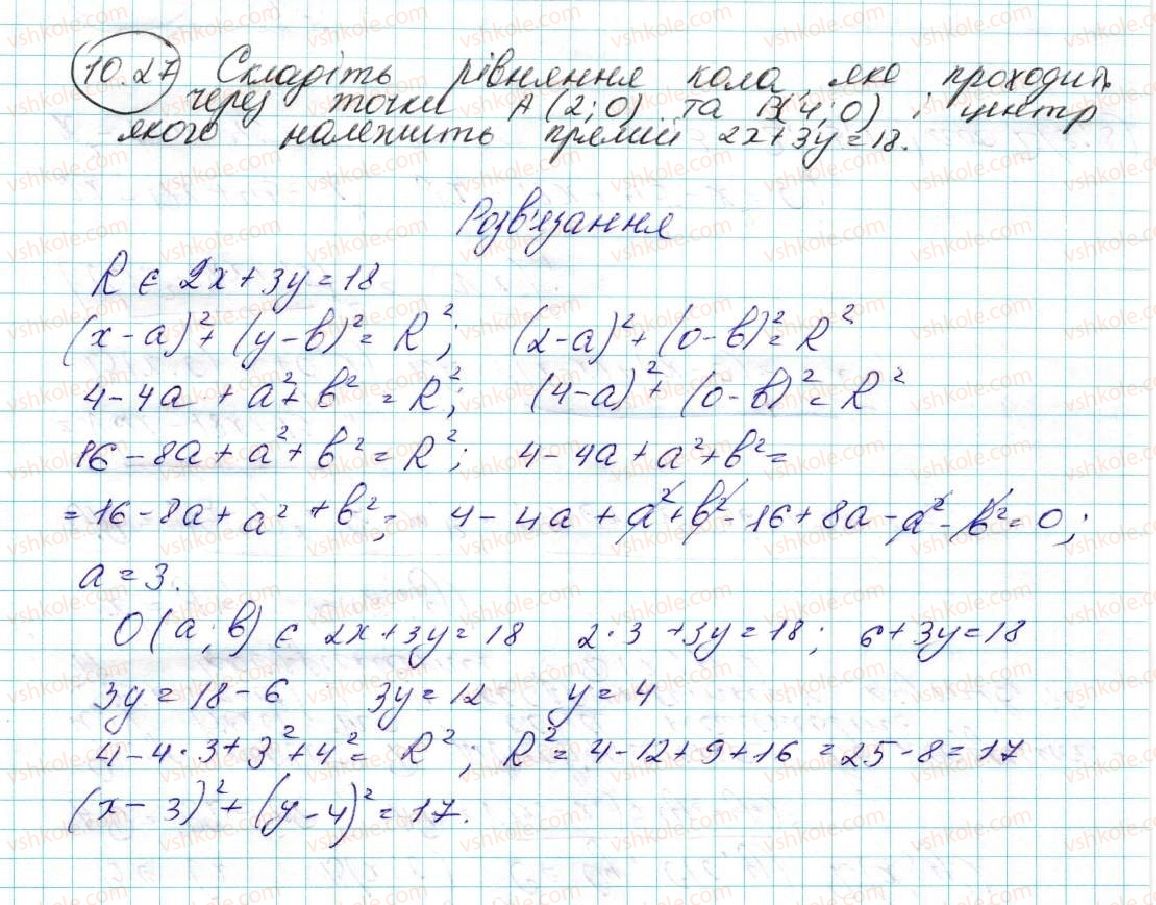 10.27 Складіть рівняння кола, яке проходить
через точки A(2;0) та B(4;0) і центр
якого належить прямій 2x+3y=18.
Розв'язання
R є 2x+3y=18
(x-a)²+(y-b)²=R²; (2-a)²+(0-b)²=R²
4-4a+a²+b²=R²; (4-a)²+(0-b)²=R²
16-8a+a²+b²=R²; 4-4a+a²+b²=
=16-8a+a²+b²; 4-4a+a²+b²-16+8a-a²-b²=0;
a=3.
O(a;b) є 2x+3y=18 2·3+3y=18; 6+3y=18
3y=18-6 3y=12 y=4
4-4·3+3²+4²=R²; R²=4-12+9+16=25-8=17
(x-3)²+(y-4)²=17.